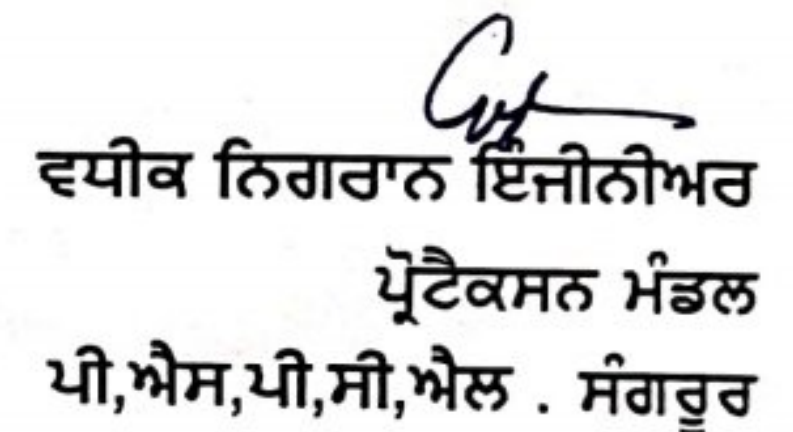 ਵਧੀਕ ਨਿਗਰਾਨ ਇੰਜੀਨੀਅਰ
ਪ੍ਰੋਟੈਕਸਨ ਮੰਡਲ
ਪੀ,ਐਸ,ਪੀ,ਸੀ,ਐਲ . ਸੰਗਰੂਰ